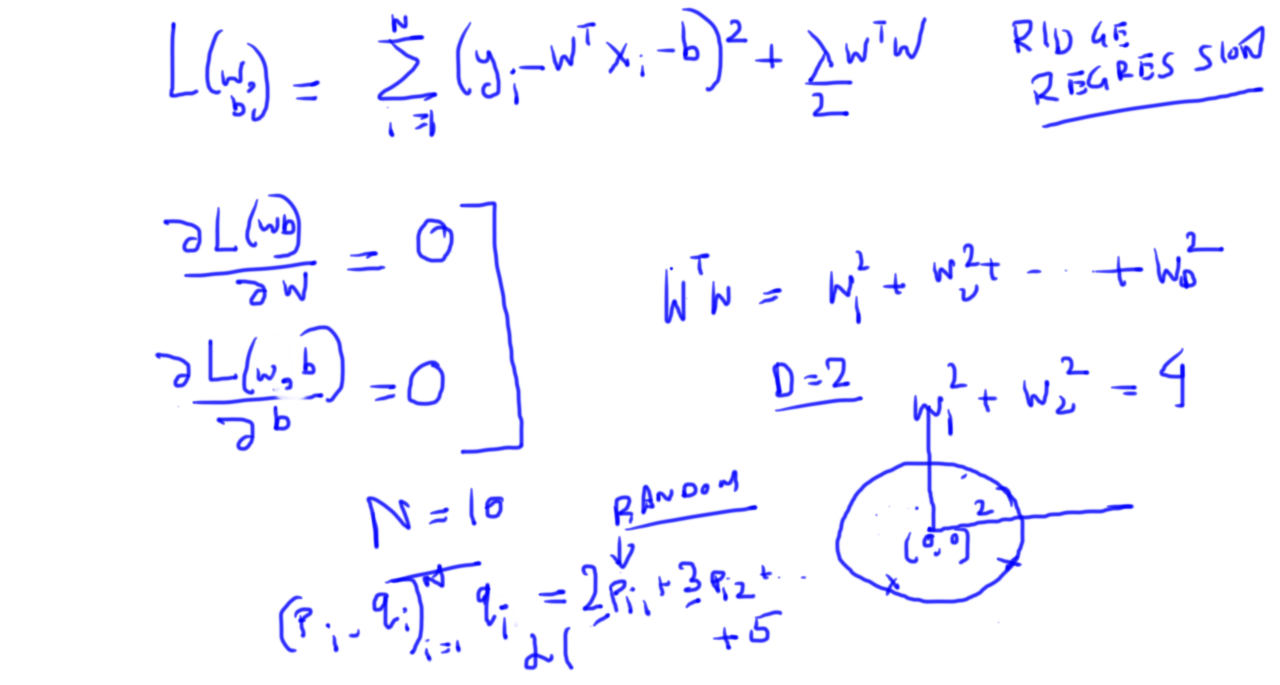 L(w, b) = \sum_{i=1}^{N} (y_i - w^T x_i - b)^2 + \frac{\lambda}{2} w^T w
RIDGE
REGRESSION
\frac{\partial L(w b)}{\partial w} = 0
w^T w = w_1^2 + w_2^2 + - \cdot \cdot + w_D^2
\frac{\partial L(w, b)}{\partial b} = 0
D = 2
w_1^2 + w_2^2 = 4
N = 10
RANDOM
2
(0, 0)
(p_i, q_i)_{i=1}^{N} q_i = 2 p_{i1} + 3 p_{i2} + \cdot \cdot
+ 5